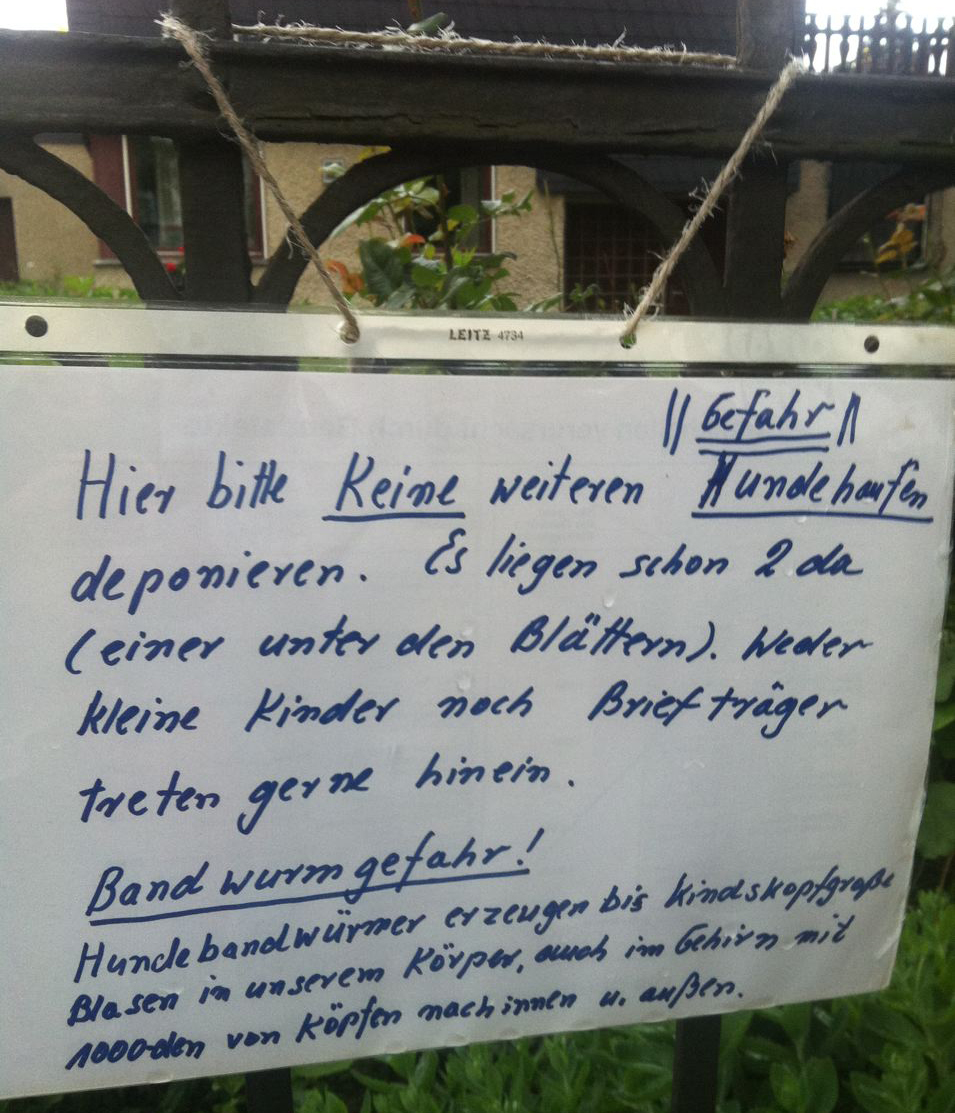 LEITZ 4734
|| Gefahr ||
Hier bitte Keine weiteren Hundehaufen
deponieren. Es liegen schon 2 da
(einer unter den Blättern). Weder
kleine Kinder noch Briefträger
treten gerne hinein.
Bandwurmgefahr!
Hundebandwürmer erzeugen bis kindskopfgroße
Blasen in unserem Körper, auch im Gehirn mit
1000-den von Köpfen nach innen u. außen.